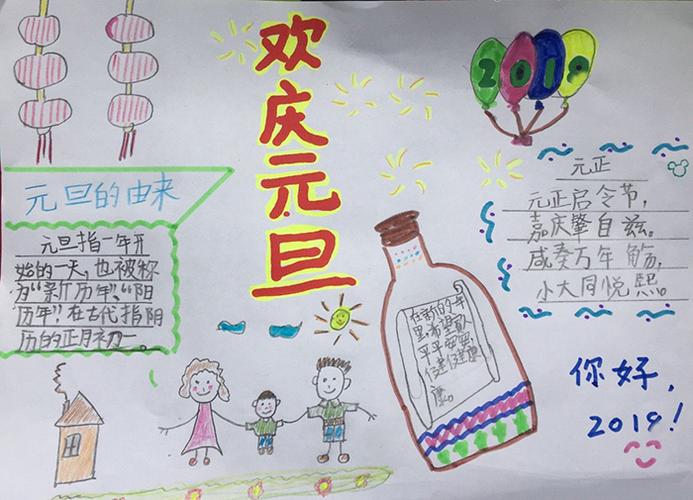 欢庆元旦
2019
元旦的由来
元旦指一年开
始的一天,也被称
为“新历年”、“阳
历年”。在古代指阴
历的正月初一。
元正
元正启令节,
嘉庆肇自兹。
咸奏万年觞,
小大同悦熙。
在新的一年
里,希望
平平安安
健健康
康。
你好,
2019!